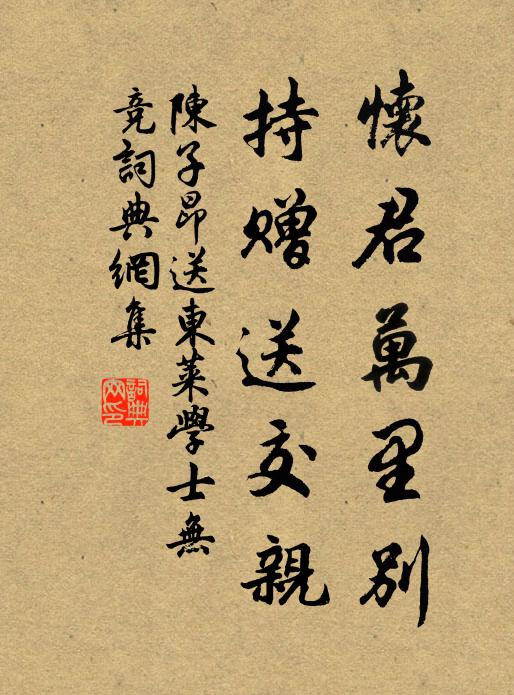 懷君萬里別
持贈送交親
陳子昂送東萊學士無
竞詞典網集
詞典